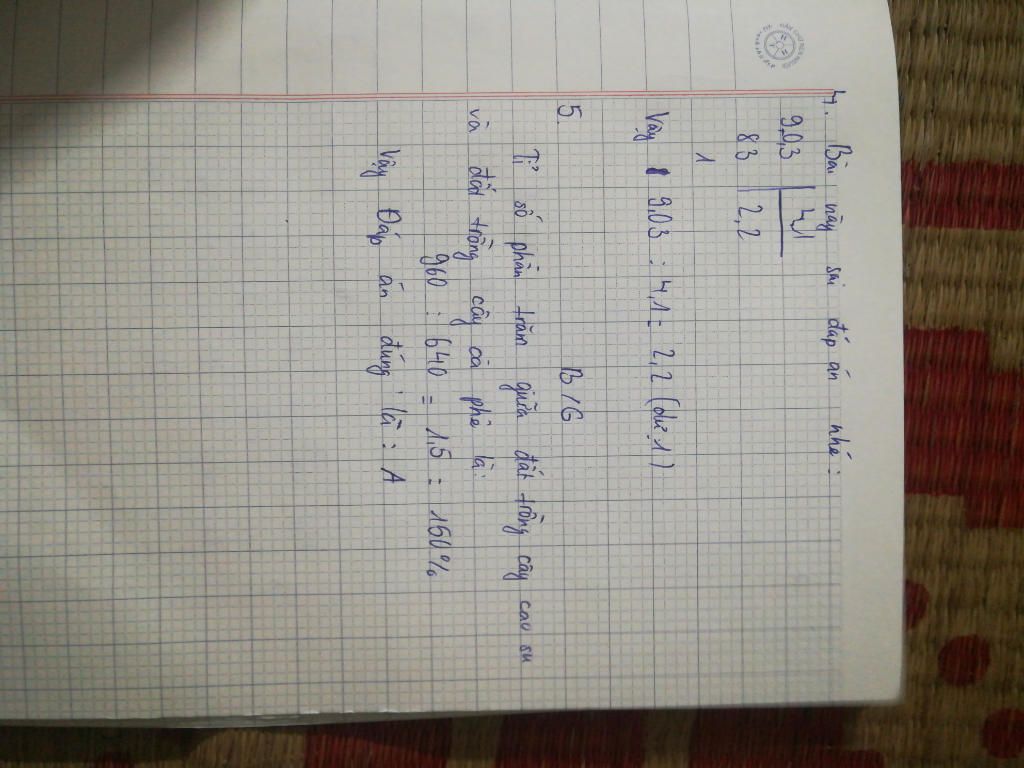 4. Bài này sai đáp án nhé:
9,0,3 4,1
83 2,2
1
Vậy 9,03 : 4,1 = 2,2 (dư 1)
5. B/G
Tỉ số phần trăm giữa đất trồng cây cao su
và đất trồng cây cà phê là:
960 : 640 = 1,5 = 150%
Vậy Đáp án đúng là: A